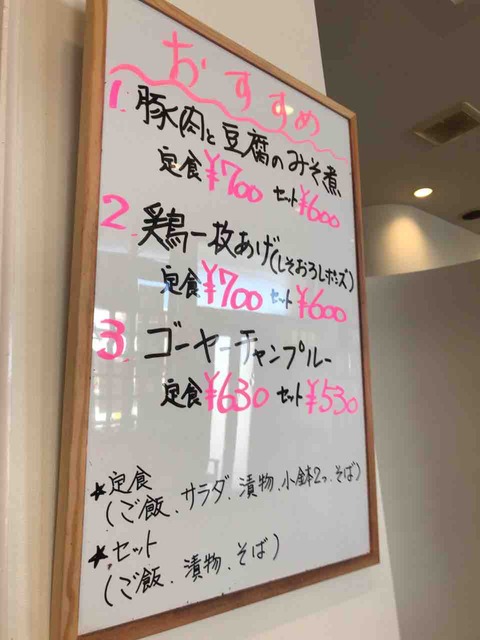 おすすめ
1 豚肉と豆腐のみそ煮
定食 ¥700 セット ¥600
2 鶏一枚あげ(しそおろしポンズ)
定食 ¥700 セット ¥600
3 ゴーヤーチャンプルー
定食 ¥630 セット ¥530
★定食
(ご飯、サラダ、漬物、小鉢2つ、そば)
★セット
(ご飯、漬物、そば)